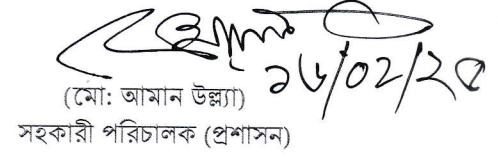 ১৬/০২/২৫
(মো: আমান উল্ল্যা)
সহকারী পরিচালক (প্রশাসন)